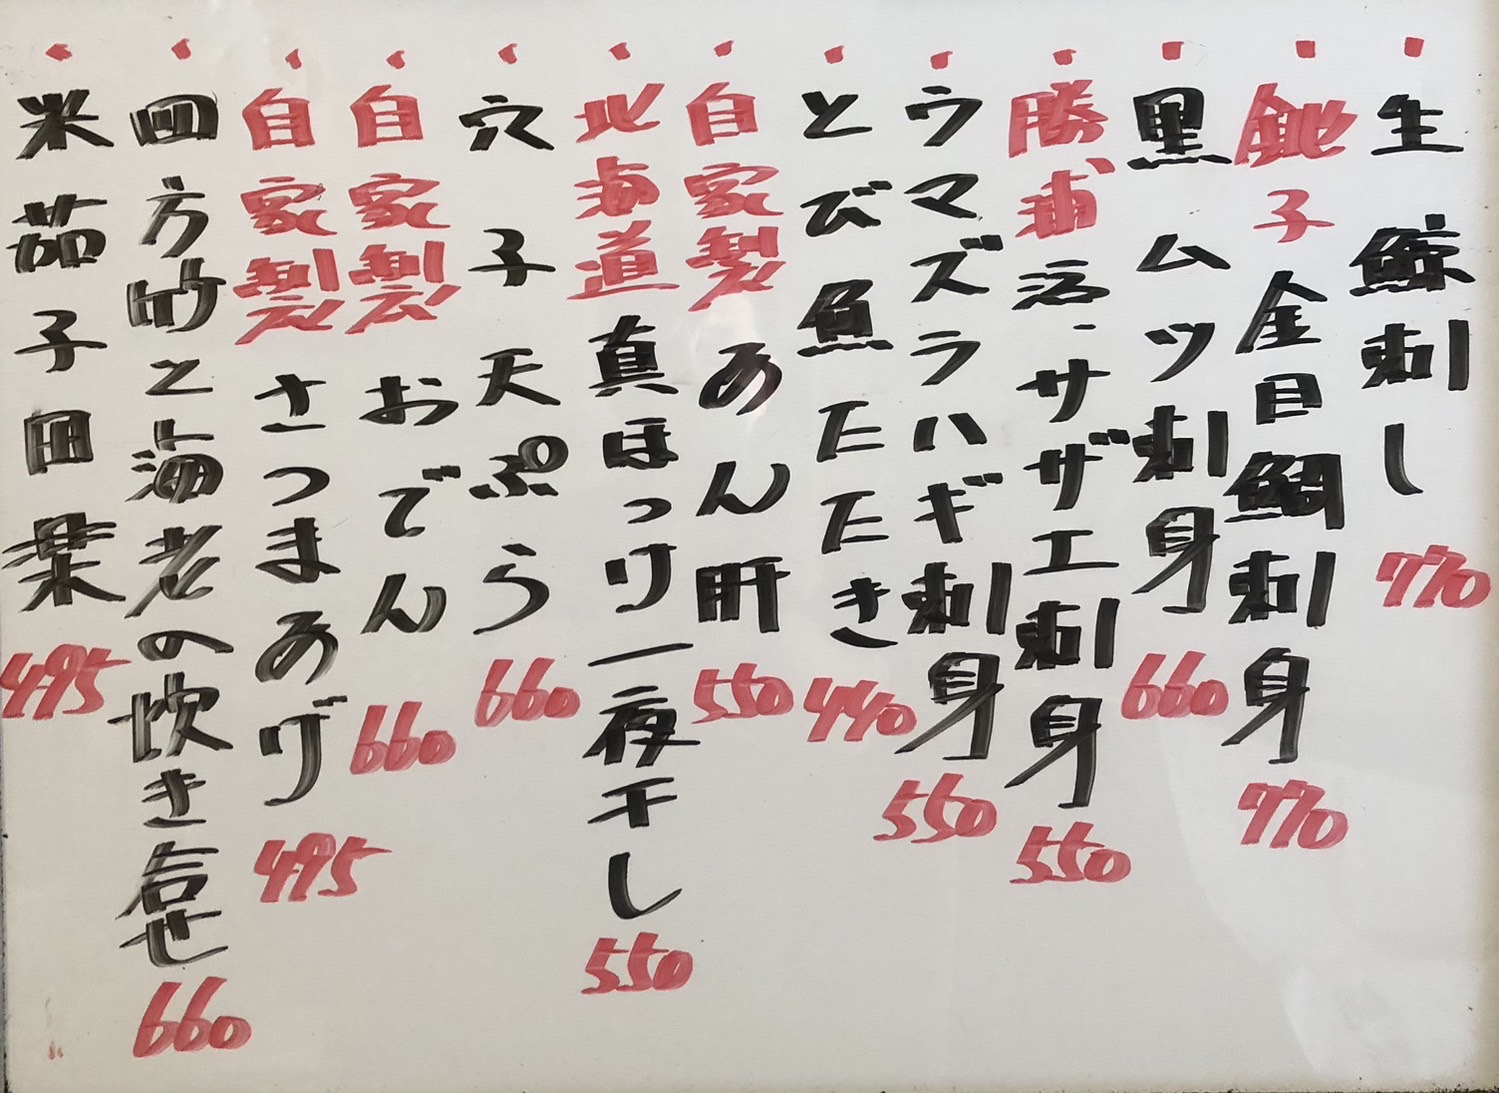 生鯨刺し 770
銚子金目鯛刺身 770
黒ムツ刺身 660
勝浦活サザエ刺身 550
ウマズラハギ刺身 550
とび魚たたき 440
自家製あん肝 550
北海道真ほっけ一夜干し 550
穴子天ぷら 660
自家製おでん 660
自家製さつまあげ 495
四方竹と海老の炊き合せ 660
米茄子田楽 495